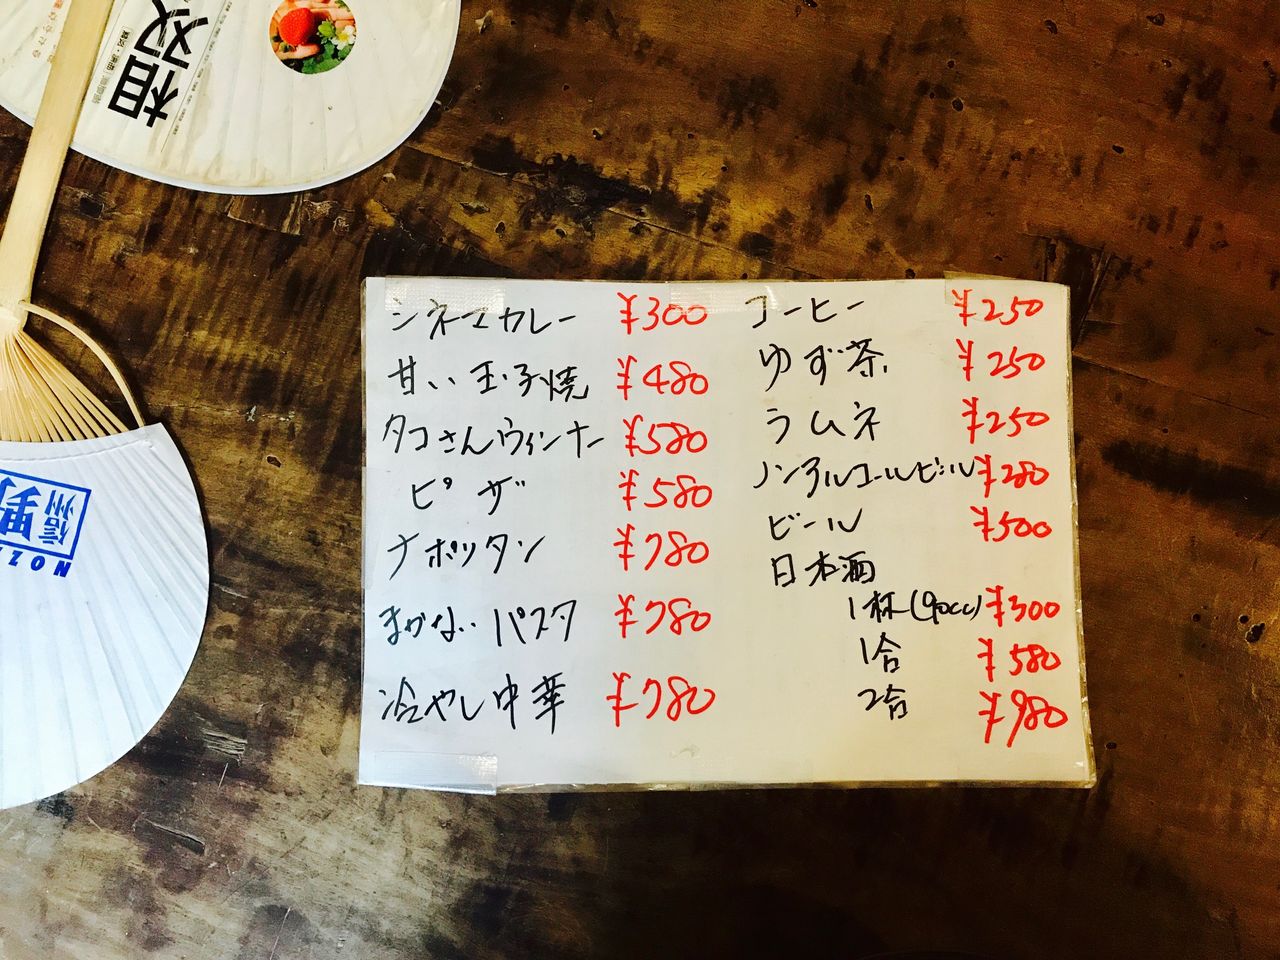 シネマカレー ¥300
甘い玉子焼 ¥480
タコさんウィンナー ¥580
ピザ ¥580
ナポリタン ¥780
まかないパスタ ¥780
冷やし中華 ¥780
コーヒー ¥250
ゆず茶 ¥250
ラムネ ¥250
ノンアルコールビール ¥280
ビール ¥500
日本酒
1杯(90cc) ¥300
1合 ¥580
2合 ¥980
信州